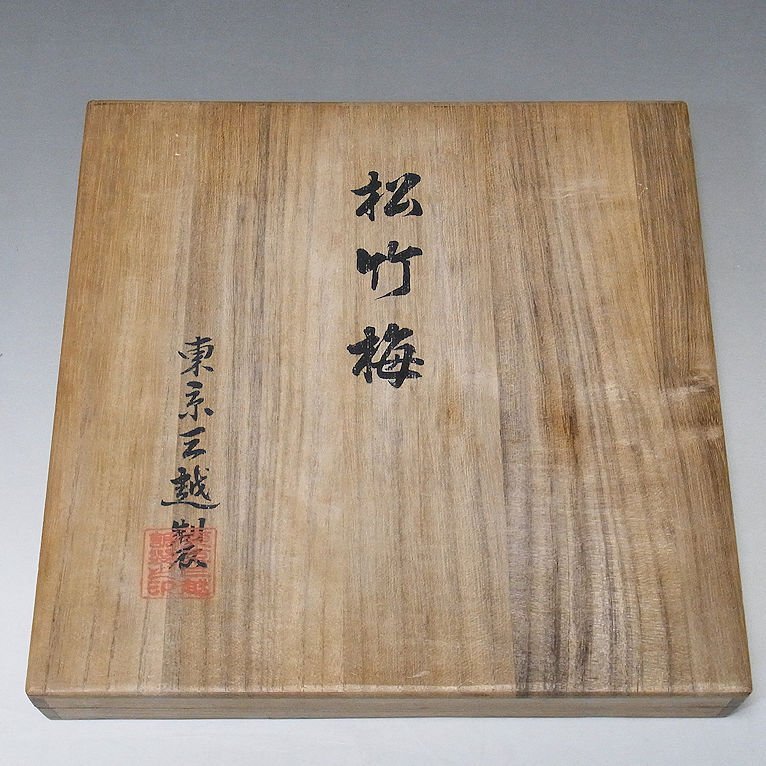 松竹梅
東京三越製